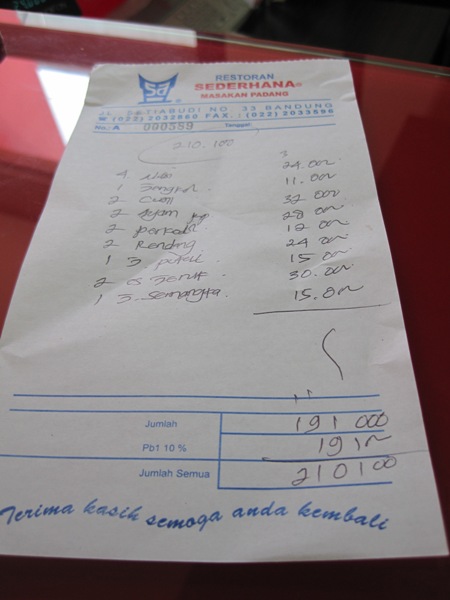 RESTORAN
SEDERHANA®
MASAKAN PADANG
JL. SETIABUDI NO. 33 BANDUNG
(022) 2032860 FAX.: (022) 2033596
No.: A 090559 Tanggal
210.100
4 Nasi 24.000
1 11.000
2 Cumi 32.000
2 Ayam pp 28.000
2 perkedel 12.000
2 Rendang 24.000
1 3 15.000
2 Jeruk 30.000
1 J. Semangka 15.000
Jumlah 191 000
Pb1 10 % 19100
Jumlah Semua 210100
Terima kasih semoga anda kembali